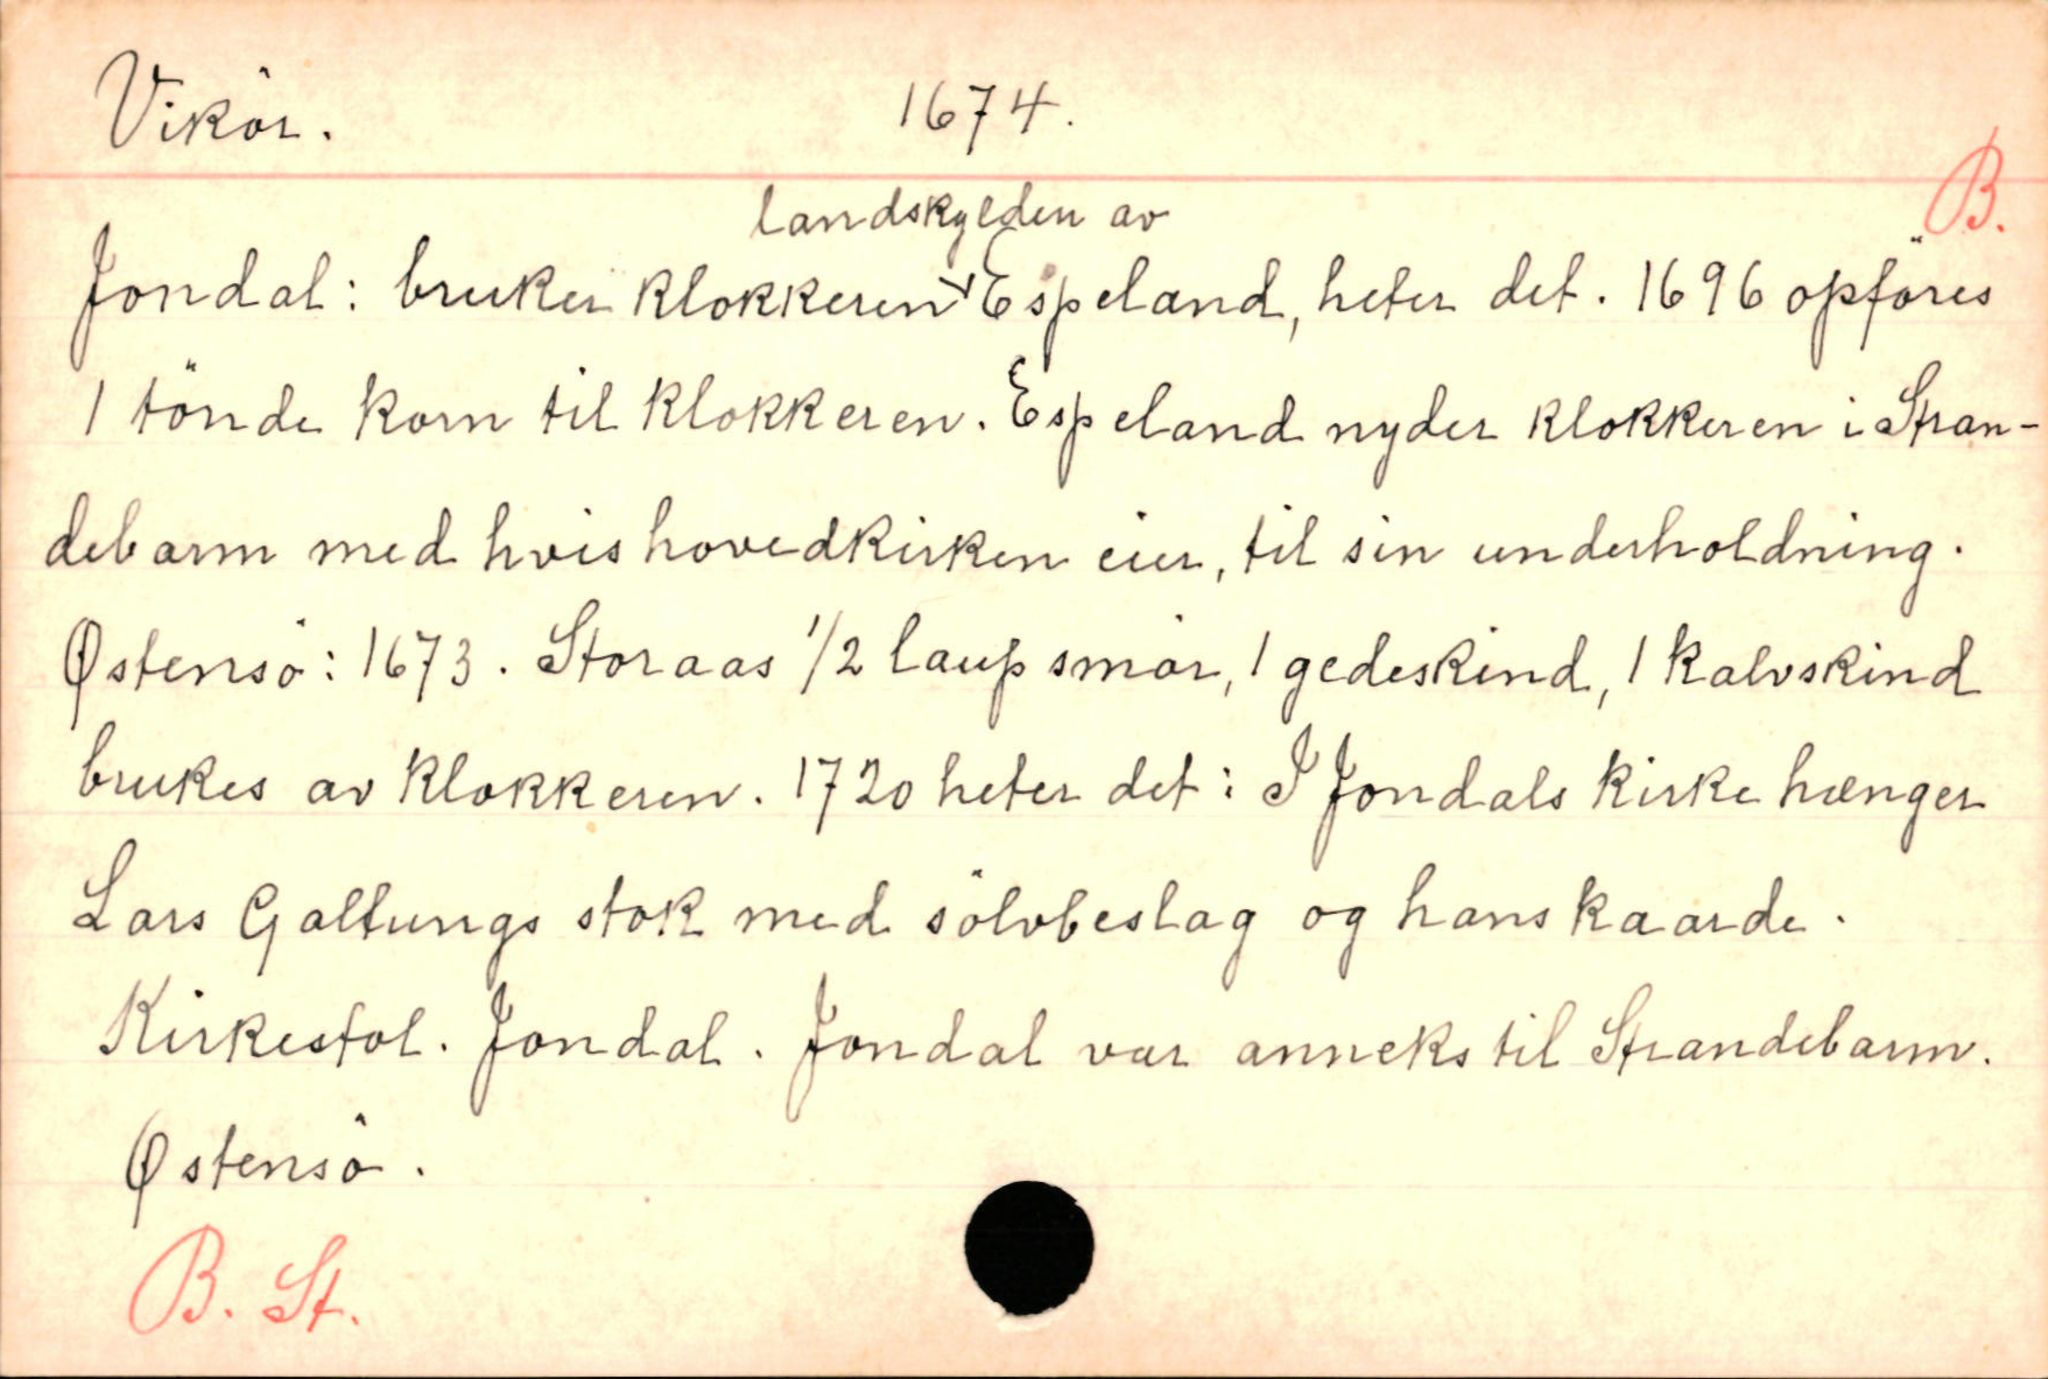 Vikör. 1674.
B.
landskylden av
Jondal: bruker klokkeren Espeland, heter det. 1696 opföres
1 tönde korn til klokkeren. Espeland nyder klokkeren i Stran-
debarm med hvis hovedkirken eier, til sin underholdning.
Østensö: 1673. Storaas 1/2 laup smör, 1 gedeskind, 1 kalvskind
brukes av klokkeren. 1720 heter det: I Jondals kirke hænger
Lars Galtungs stok med sölvbeslag og hans kaarde.
Kirkestol. Jondal. Jondal var anneks til Strandebarm.
Østensö.
B. St.